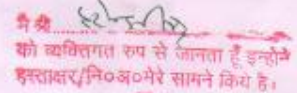 मै श्री
को व्यक्तिगत रुप से जानता हूँ इन्होने
हस्ताक्षर/नि०अ०मेरे सामने किये है।